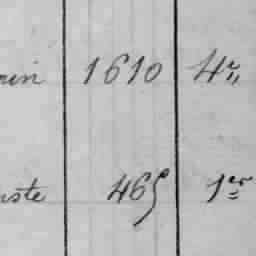 rin 1610 4e "
uste 465 1er